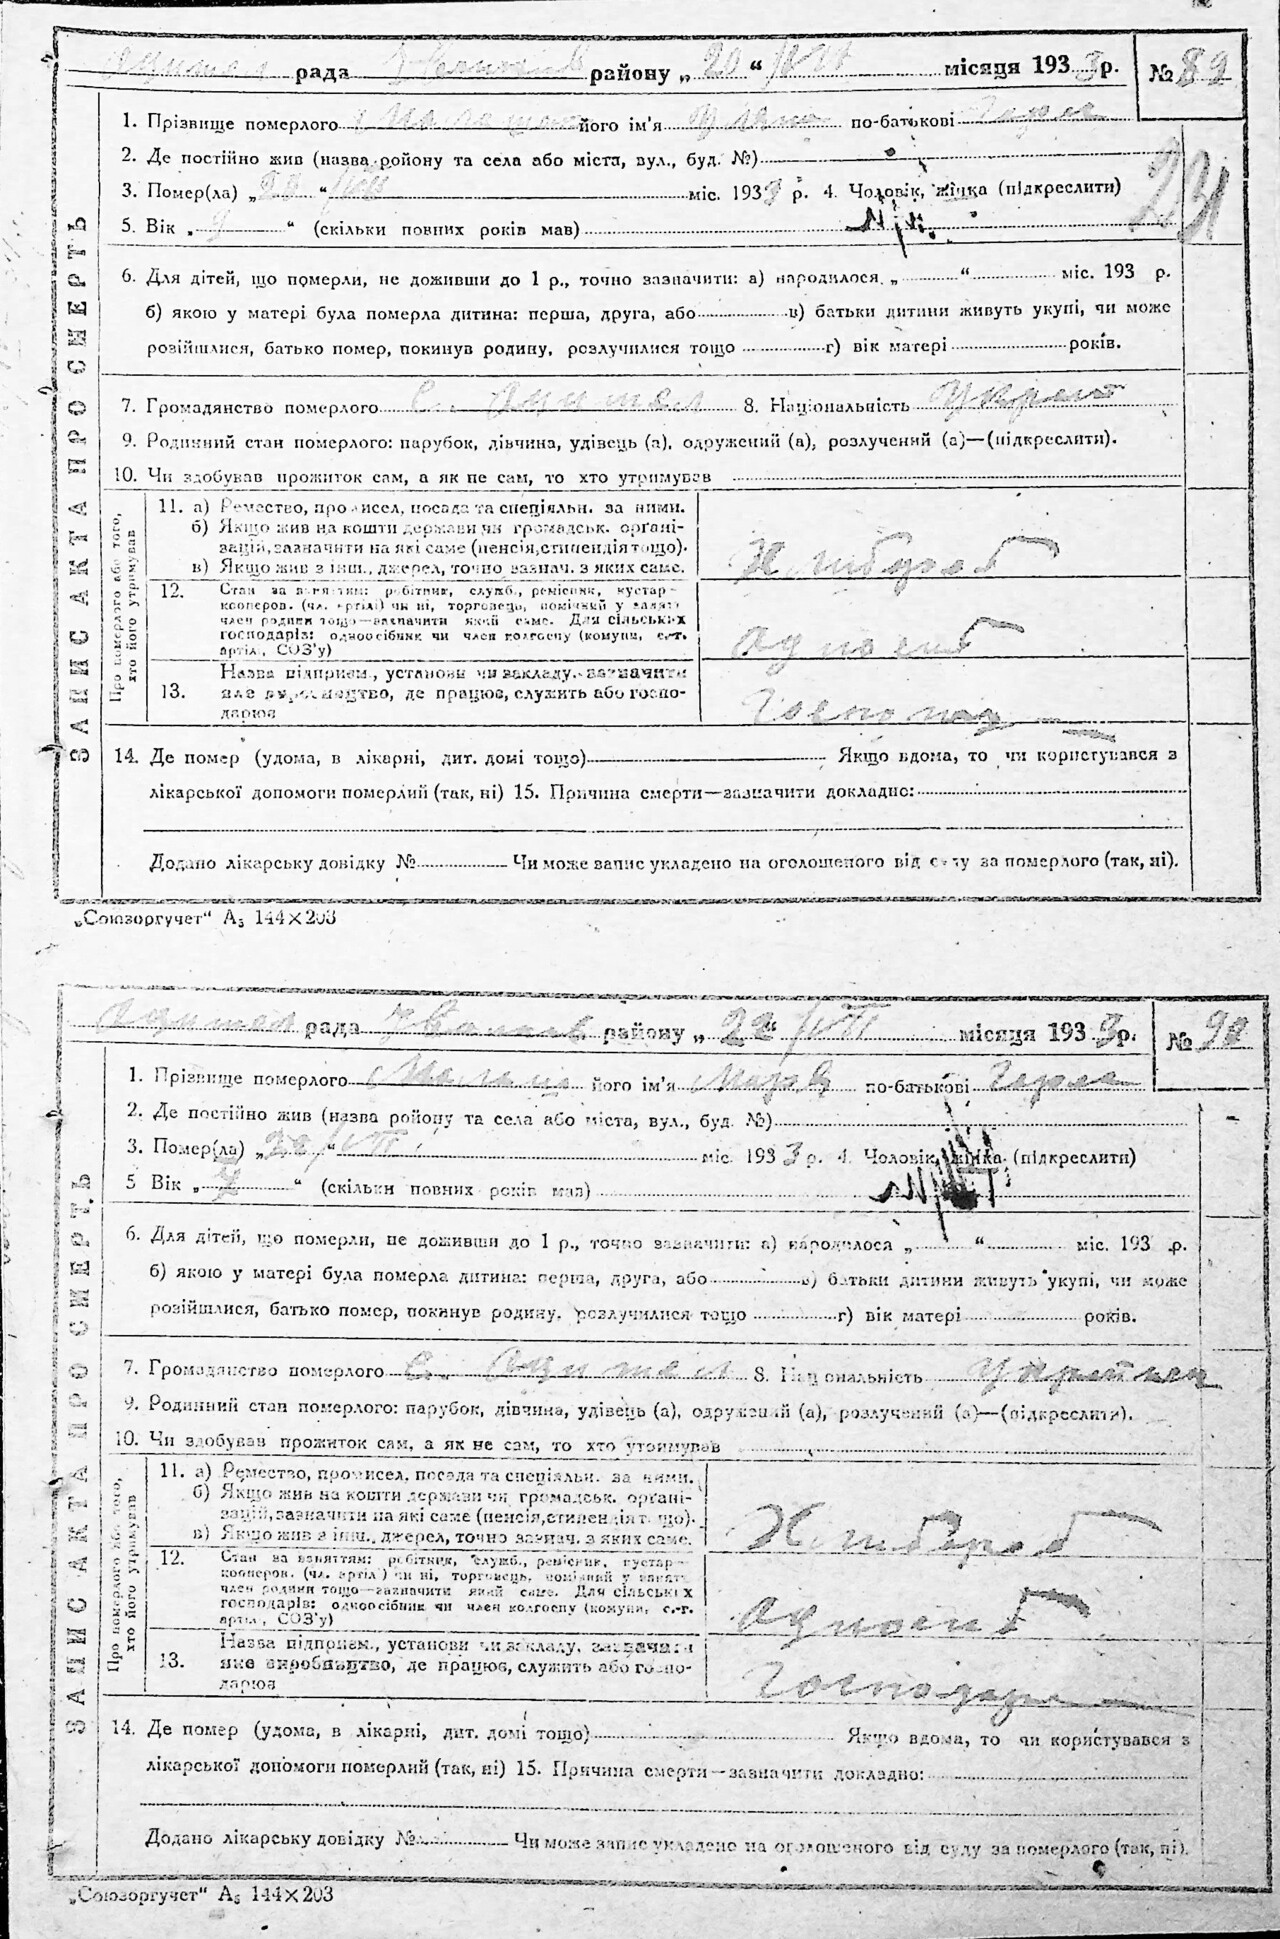 рада району „20“ місяця 1933 р. № 89
1. Прізвище померлого його ім'я по-батькові
2. Де постійно жив (назва ройону та села або міста, вул., буд. №)
3. Помер(ла) „20“ міс. 1933 р. 4. Чоловік, жінка (підкреслити)
5. Вік „9“ (скільки повних років мав)
6. Для дітей, що померли, не доживши до 1 р., точно зазначити: а) народилося „ “ міс. 193 р.
б) якою у матері була померла дитина: перша, друга, або в) батьки дитини живуть укупі, чи може
розійшлися, батько помер, покинув родину, розлучилися тощо г) вік матері років.
7. Громадянство померлого С. 8. Національність
9. Родинний стан померлого: парубок, дівчина, удівець (а), одружений (а), розлучений (а)—(підкреслити).
10. Чи здобував прожиток сам, а як не сам, то хто утримував
ЗАПИС АКТА ПРО СМЕРТЬ
Про померлого або того, хто його утримував
11. а) Ремество, промисел, посада та спеціяльн. за ними.
б) Якщо жив на кошти держави чи громадськ. органі-
зацій, зазначити на які саме (пенсія, стипендія тощо).
в) Якщо жив з інш., джерел, точно зазнач. з яких саме.
Хлібороб
12. Стан за заняттям: робітник, служб., ремісник, кустар-
кооперов. (чл. артілі) чи ні, торговець, помічний у занят.
член родини тощо—зазначити який саме. Для сільських
господарів: одноосібник чи член колгоспу (комуни, с.-г.
артіл, СОЗ'у)
13. Назва підприєм., установи чи закладу, зазначити
яке виробництво, де працює, служить або госпо-
дарює
14. Де помер (удома, в лікарні, дит. домі тощо) Якщо вдома, то чи користувався з
лікарської допомоги померлий (так, ні) 15. Причина смерти—зазначити докладно:
Додано лікарську довідку № Чи може запис укладено на оголошеного від суду за померлого (так, ні).
„Союзоргучет“ А₅ 144×203
рада району „22“ місяця 1933 р. № 90
1. Прізвище померлого його ім'я по-батькові
2. Де постійно жив (назва ройону та села або міста, вул., буд. №)
3. Помер(ла) міс. 1933 р. 4. Чоловік, жінка (підкреслити)
5 Вік „7“ (скільки повних років мав)
6. Для дітей, що померли, не доживши до 1 р., точно зазначити: а) народилося „ “ міс. 193 р.
б) якою у матері була померла дитина: перша, друга, або в) батьки дитини живуть укупі, чи може
розійшлися, батько помер, покинув родину, розлучилися тощо г) вік матері років.
7. Громадянство померлого С. 8. Національність
9. Родинний стан померлого: парубок, дівчина, удівець (а), одружений (а), розлучений (а)—(підкреслити).
10. Чи здобував прожиток сам, а як не сам, то хто утримував
ЗАПИС АКТА ПРО СМЕРТЬ
Про померлого або того, хто його утримував
11. а) Ремество, промисел, посада та спеціяльн. за ними.
б) Якщо жив на кошти держави чи громадськ. органі-
зацій, зазначити на які саме (пенсія, стипендія т. що).
в) Якщо жив з інш., джерел, точно зазнач. з яких саме.
Хлібороб
12. Стан за заняттям: робітник, служб., ремісник, кустар-
кооперов. (чл. артіл) чи ні, торговець, помічний у занят.
член родини тощо—зазначити який саме. Для сільських
господарів: одноосібник чи член колгоспу (комуни, с.-г.
артіл, СОЗ'у)
13. Назва підприєм., установи чи закладу, зазначити
яке виробництво, де працює, служить або госпо-
дарює
14. Де помер (удома, в лікарні, дит. домі тощо) Якщо вдома, то чи користувався з
лікарської допомоги померлий (так, ні) 15. Причина смерти—зазначити докладно:
Додано лікарську довідку № Чи може запис укладено на оголошеного від суду за померлого (так, ні).
„Союзоргучет“ А₅ 144×203